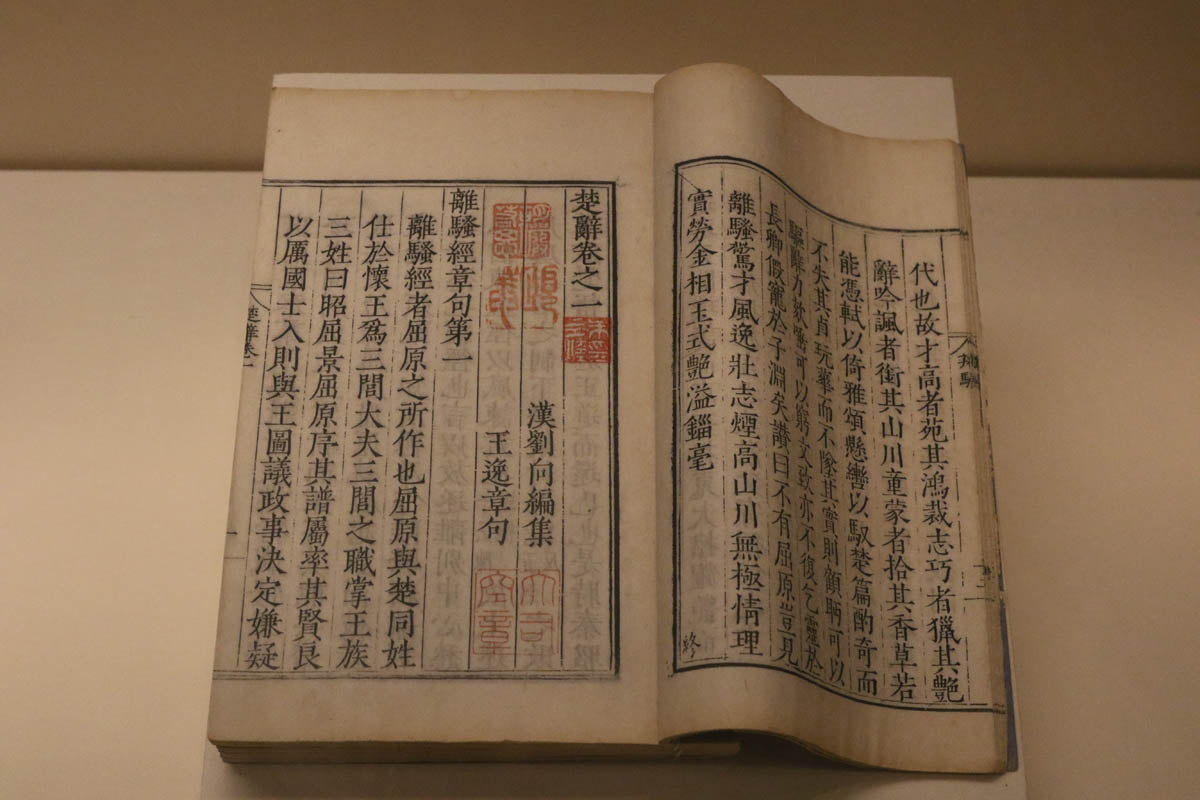 代也故才高者苑其鴻裁志巧者獵其艷
辭吟諷者銜其山川童蒙者拾其香草若
能憑軾以倚雅頌懸轡以馭楚篇酌奇而
不失其真玩華而不墜其實則顧眄可以
驅辭力欬唾可以窮文致亦不復乞靈於
長卿假寵於子淵矣讃曰不有屈原豈見
離騷驚才風逸壯志煙高山川無極情理
實勞金相玉式艷溢錙毫
終
楚辭卷之一
漢劉向編集
王逸章句
離騷經章句第一
離騷經者屈原之所作也屈原與楚同姓
仕於懷王爲三閭大夫三閭之職掌王族
三姓曰昭屈景屈原序其譜屬率其賢良
以厲國士入則與王圖議政事決定嫌疑